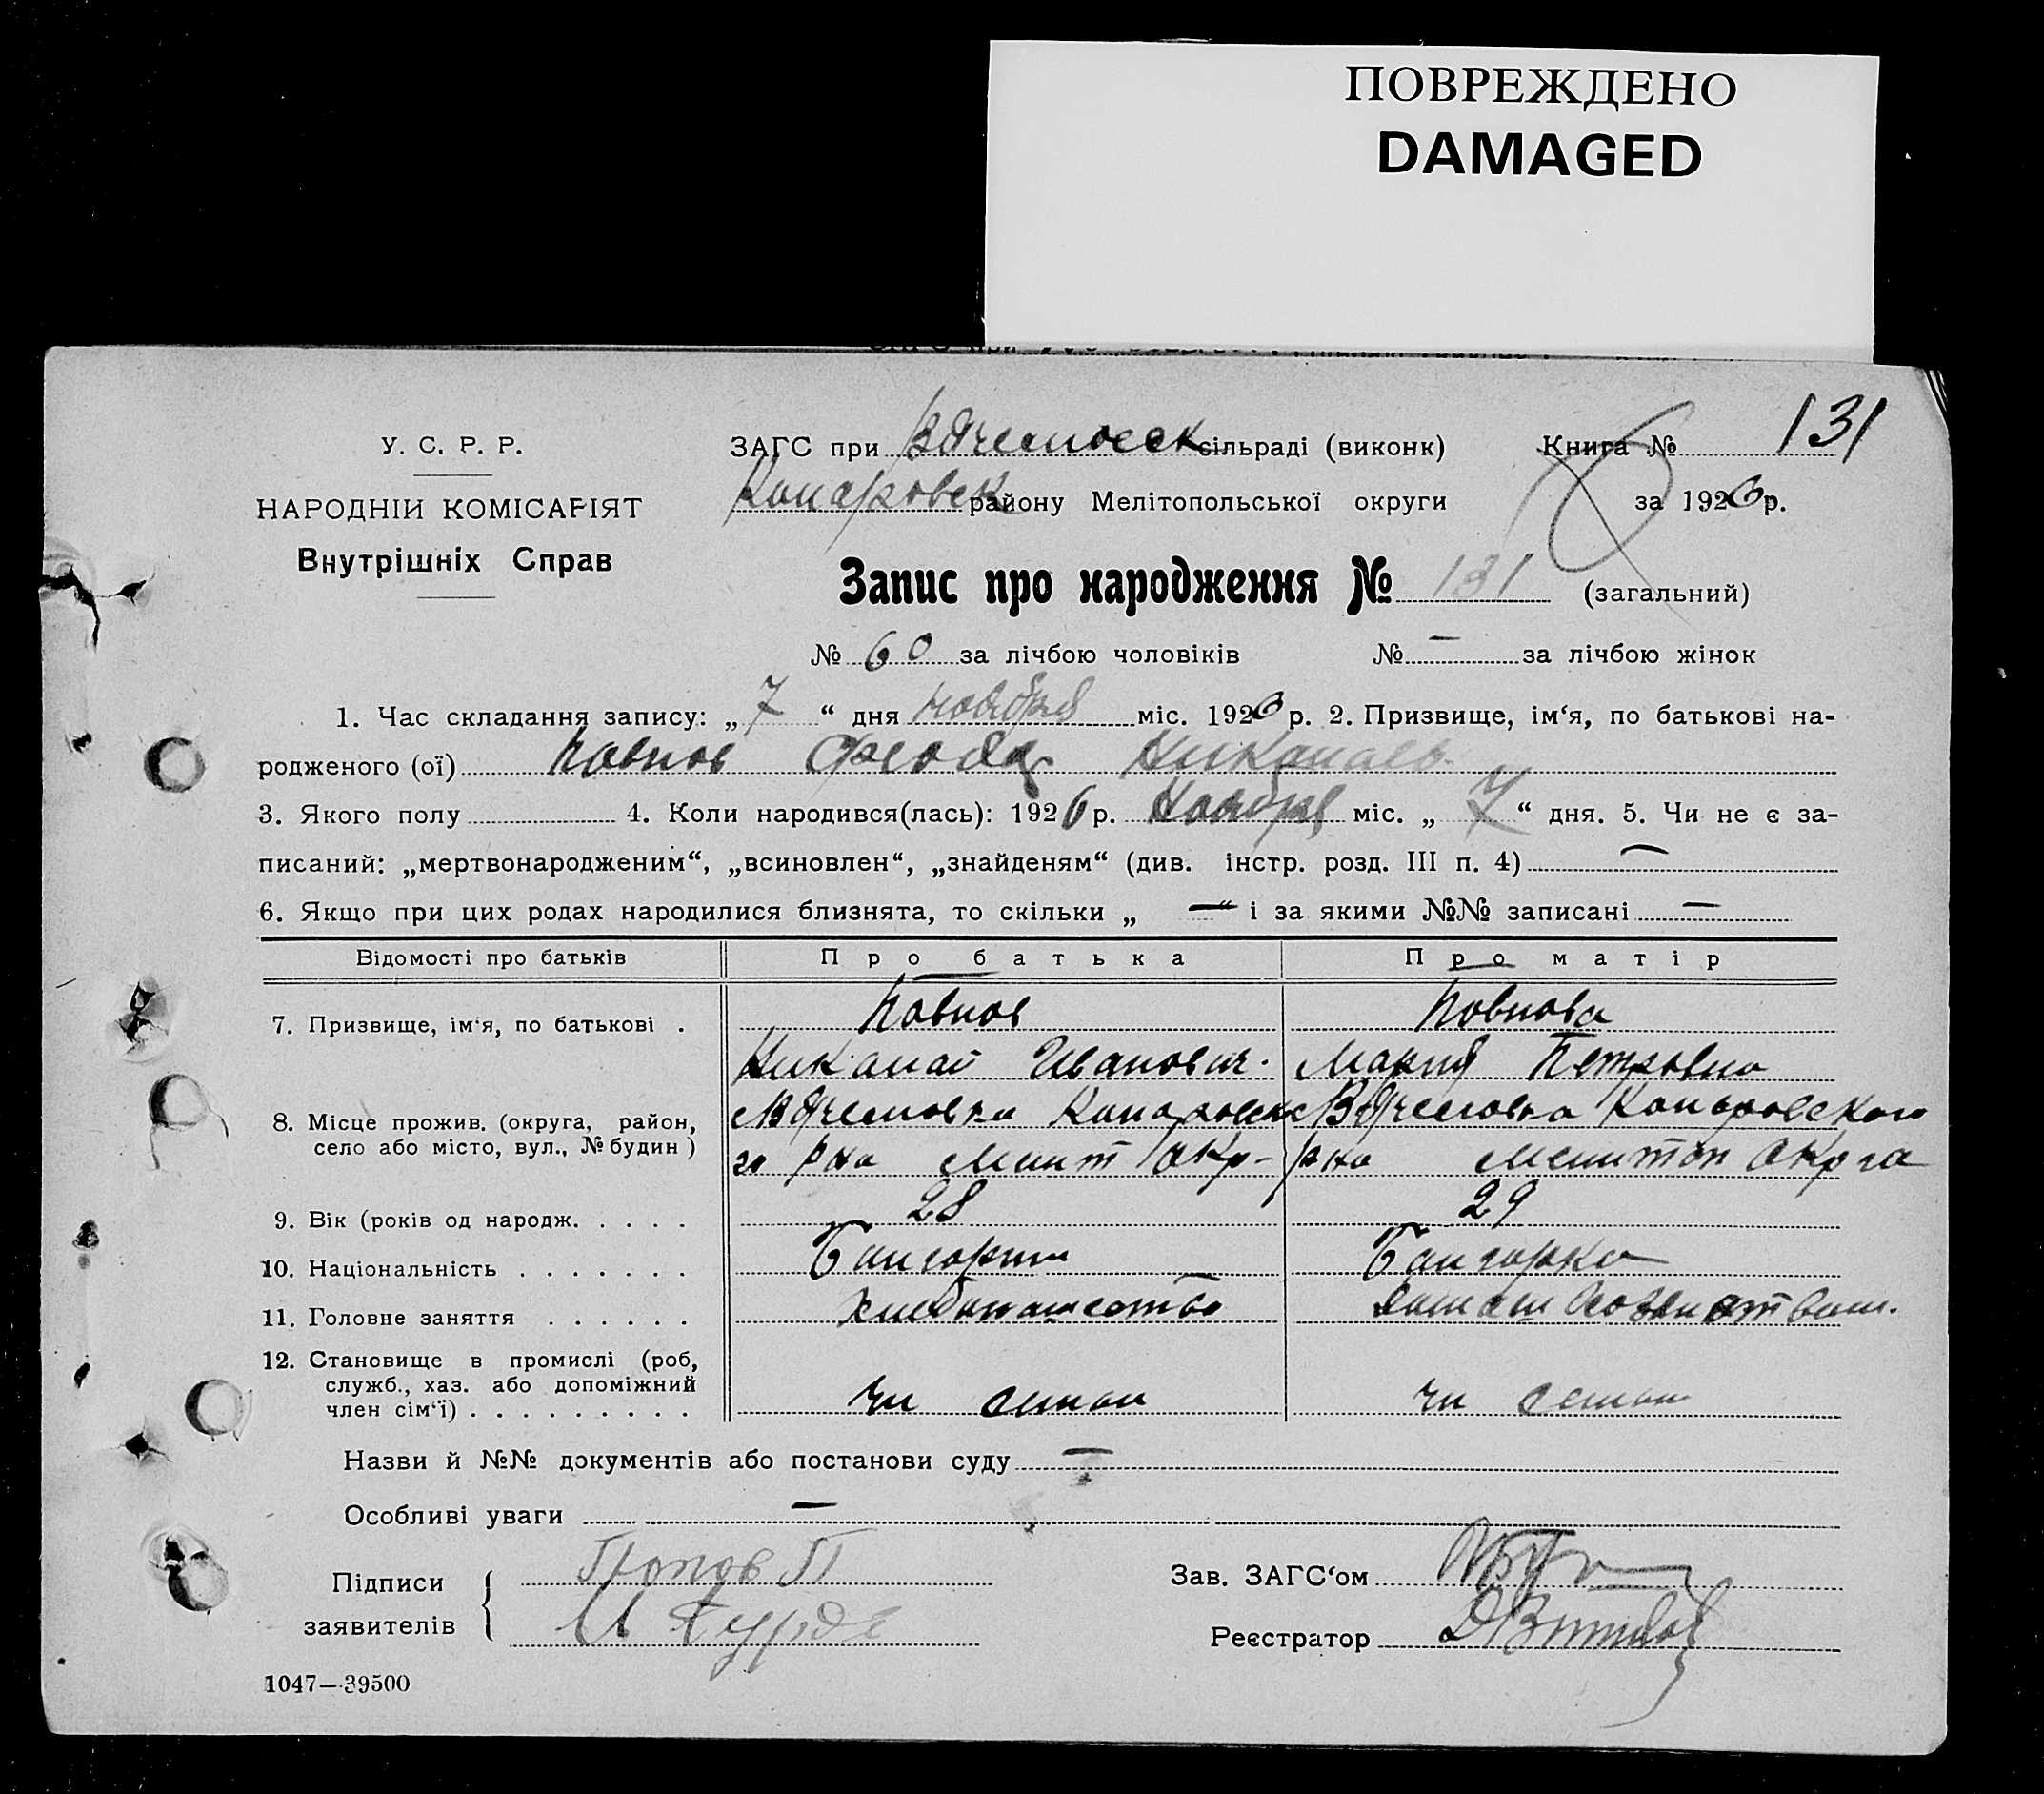 ПОВРЕЖДЕНО
DAMAGED
131
У. С. Р. Р.
НАРОДНІЙ КОМІСАРІЯТ
Внутрішніх Справ
ЗАГС при сільраді (виконк) Книга №
району Мелітопольської округи за 1926 р.
Запис про народження № 131 (загальний)
№ 60 за лічбою чоловіків № — за лічбою жінок
1. Час складання запису: „ 7 “ дня ноября міс. 1926 р. 2. Призвище, ім‘я, по батькові на-
родженого (ої)
3. Якого полу 4. Коли народився(лась): 1926 р. Ноября міс. „ 7 “ дня. 5. Чи не є за-
писаний: „мертвонародженим“, „всиновлен“, „знайденям“ (див. інстр. розд. III п. 4) —
6. Якщо при цих родах народилися близнята, то скільки „ — “ і за якими №№ записані —
Відомості про батьків Про батька Про матір
7. Призвище, ім‘я, по батькові .
Николай Иванович. Мария Петровна
8. Місце прожив. (округа, район,
село або місто, вул., № будин )
9. Вік (років од народж. . . . . 28 29
10. Національність . . . . . . . Болгарин Болгарка
11. Головне заняття . . . . . . хлебопашество
12. Становище в промислі (роб,
служб., хаз. або допоміжний
член сім‘ї) . . . . . . . . . чл семьи чл семьи
Назви й №№ документів або постанови суду —
Особливі уваги —
Підписи Попов П Зав. ЗАГС‘ом
заявителів Реєстратор
1047—39500